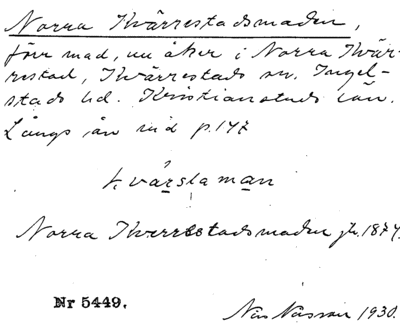 Norra Kvärrestadsmaden,
förr mad, nu åker i Norra Kvär-
restad, Kvärrestads sn. Ingel-
stads hd. Kristianstads län.
Längs ån vid p. 147
kvärstaman
Norra Kverrestadsmaden jb. 1874.
Nr 5449.
Nils Nilsson 1930.